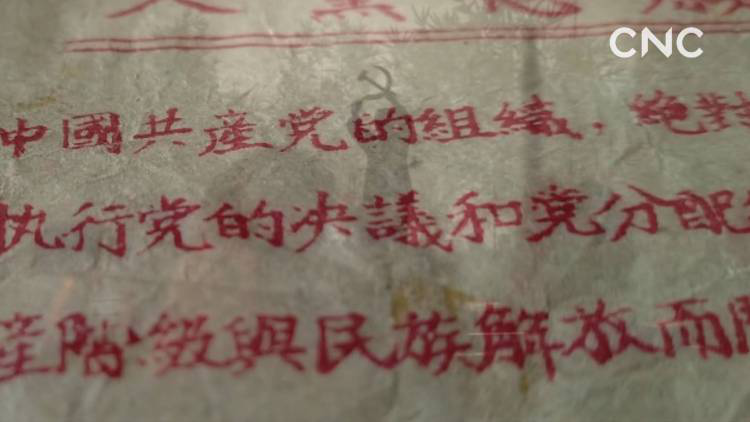 CNC
中國共産党的組織，絶對
执行党的决議和党分配
産階級與民族解放而